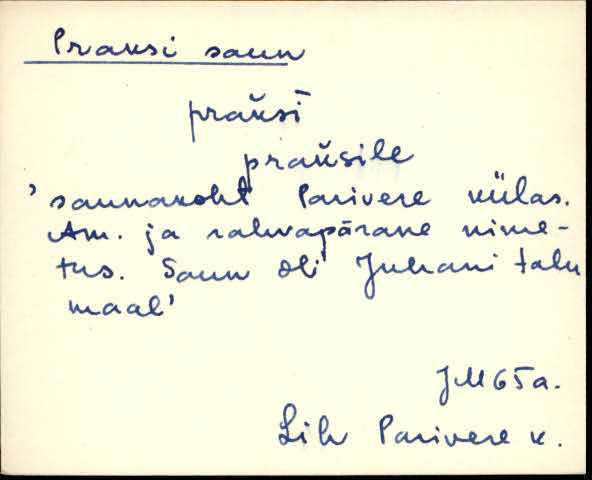 Prauksi saun
praũsī
praũsile
'saunakoht Parivere külas.
Am. ja rahvapärane nime-
tus. Saun oli Juhani talu
maal'
JM 65a.
Lih Parivere k.